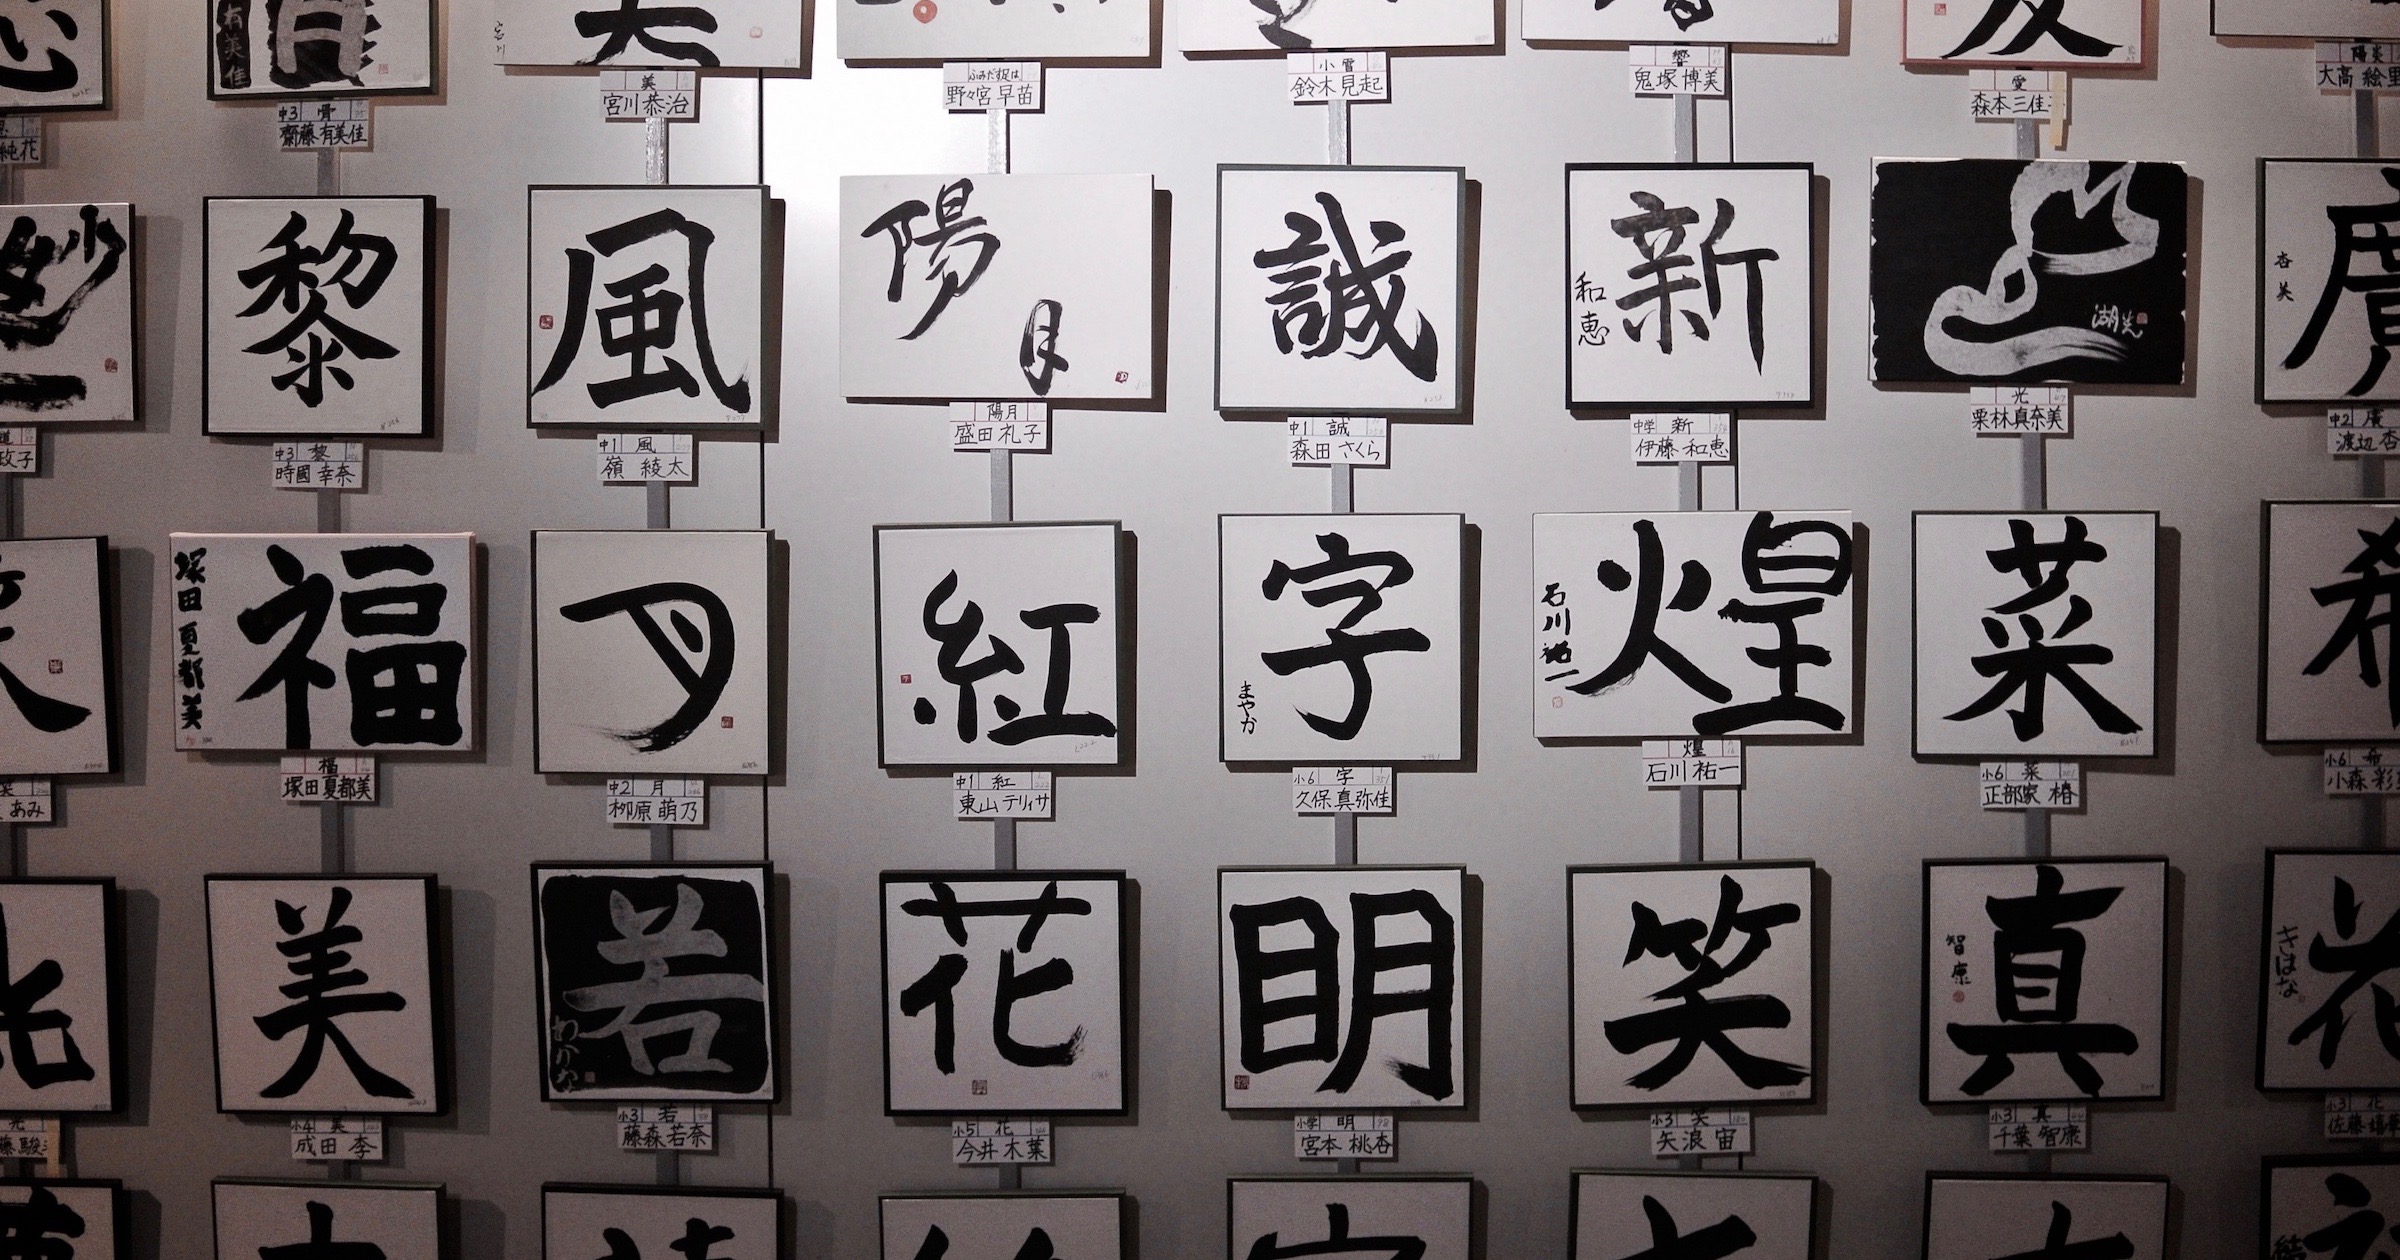 有美佳
宮川
美
宮川恭治
ふみだす足は
野々宮早苗
小雪
鈴木見起
響
鬼塚博美
愛
森本三佳
陽炎
大高 絵里
中3 骨
齋藤有美佳
純花
妙
黎
風
陽
月
誠
新
和恵
湖光
廣
杏美
道
政子
中3 黎
時國 幸奈
中1 風
嶺 綾太
陽月
盛田礼子
中1 誠
森田 さくら
中学 新
伊藤 和恵
光
栗林真奈美
中2 廣
渡辺 杏
福
塚田 夏都美
月
紅
字
まやか
煌
石川祐一
菜
希
菜
あみ
福
塚田夏都美
中2 月
栁原 萌乃
中1 紅
東山 テリィサ
小6 字
久保真弥佳
煌
石川 祐一
小6 菜
正部家 椿
小6 希
小森 彩
光
美
若
わかな
花
明
笑
真
智康
花
きはな
光
藤駿
小4 美
成田 李
小3 若
藤森若奈
小5 花
今井 木葉
小学 明
宮本 桃杏
小3 笑
矢浪 宙
小3 真
千葉 智康
小3 花
佐藤